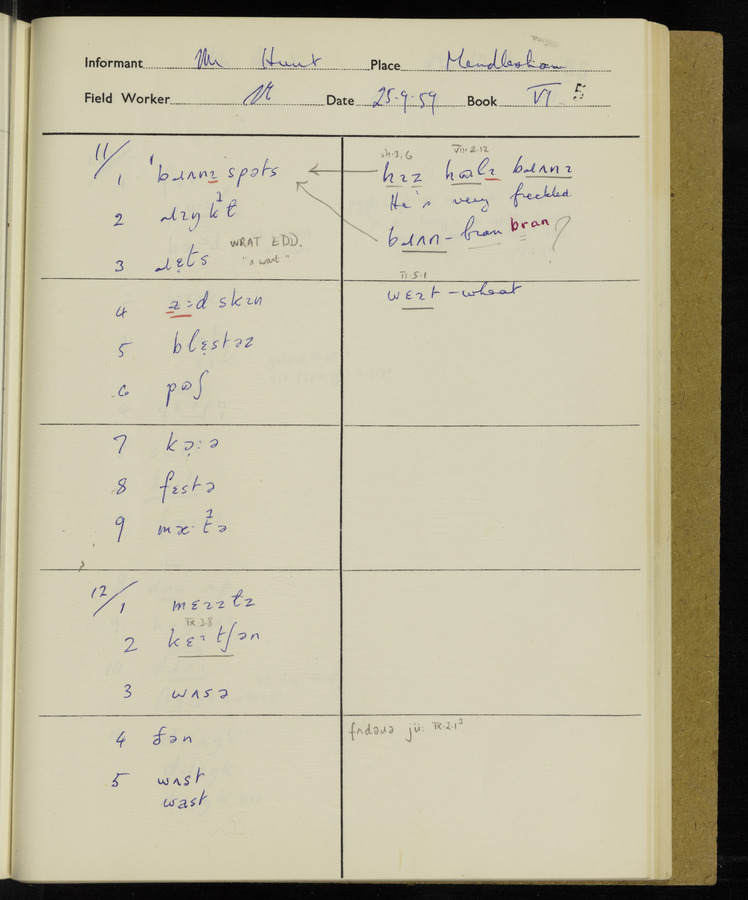 Informant Mr Hunt Place Mendlesham
Field Worker Date 25·9·59 Book VI 5
11/
1 ˈbɹʌnɪ spəts
2 ɹɪŋkɫ
3 ɹɛts WRAT EDD.
"a wart"
4 ɛ:d skɪn
5 blɛstəz
6 pɒʃ
7 kɔ:ə
8 fɛstə
9 mæ·tə
12/
1
IX 3.8
2 kɛɪtʃən
3 wʌsə
4 fən
5 wʌst
wast
VII·2.12
hɪz bɹʌnɪ
He's very freckled.
bɹʌn – bran bran ?
II·5·1
wɛɪt – wheat
fʌdəɹə jü: IX·2·1²